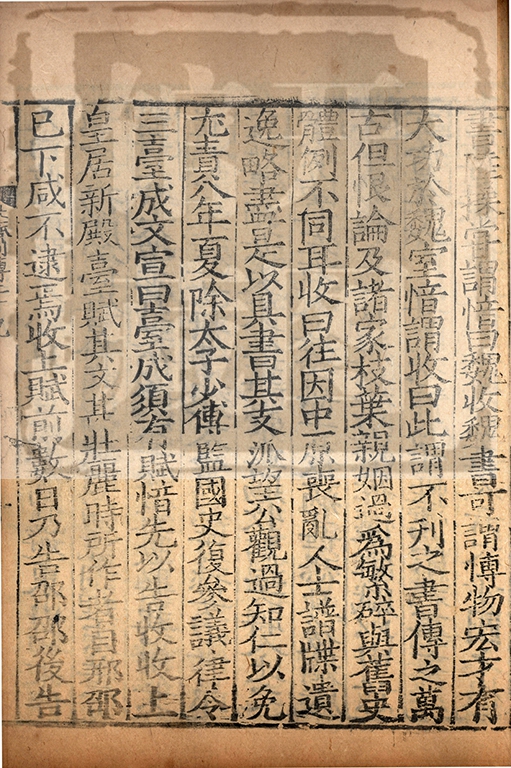 書陸操嘗謂愔曰魏收魏書可謂博物宏才有
大功於魏室愔謂收曰此謂不刊之書傳之萬
古但恨論及諸家枝葉親姻過為繁碎與舊史
體例不同耳收曰往因中原喪亂人士譜牒遺
逸略盡是以具書其支派望公觀過知仁以免
尤責八年夏除太子少傅監國史復參議律令
三臺成文宣曰臺成須有賦愔先以告收收上
皇居新殿臺賦其文甚壯麗時所作者自邢邵
已下咸不逮焉收上賦前數日乃告邵邵後告